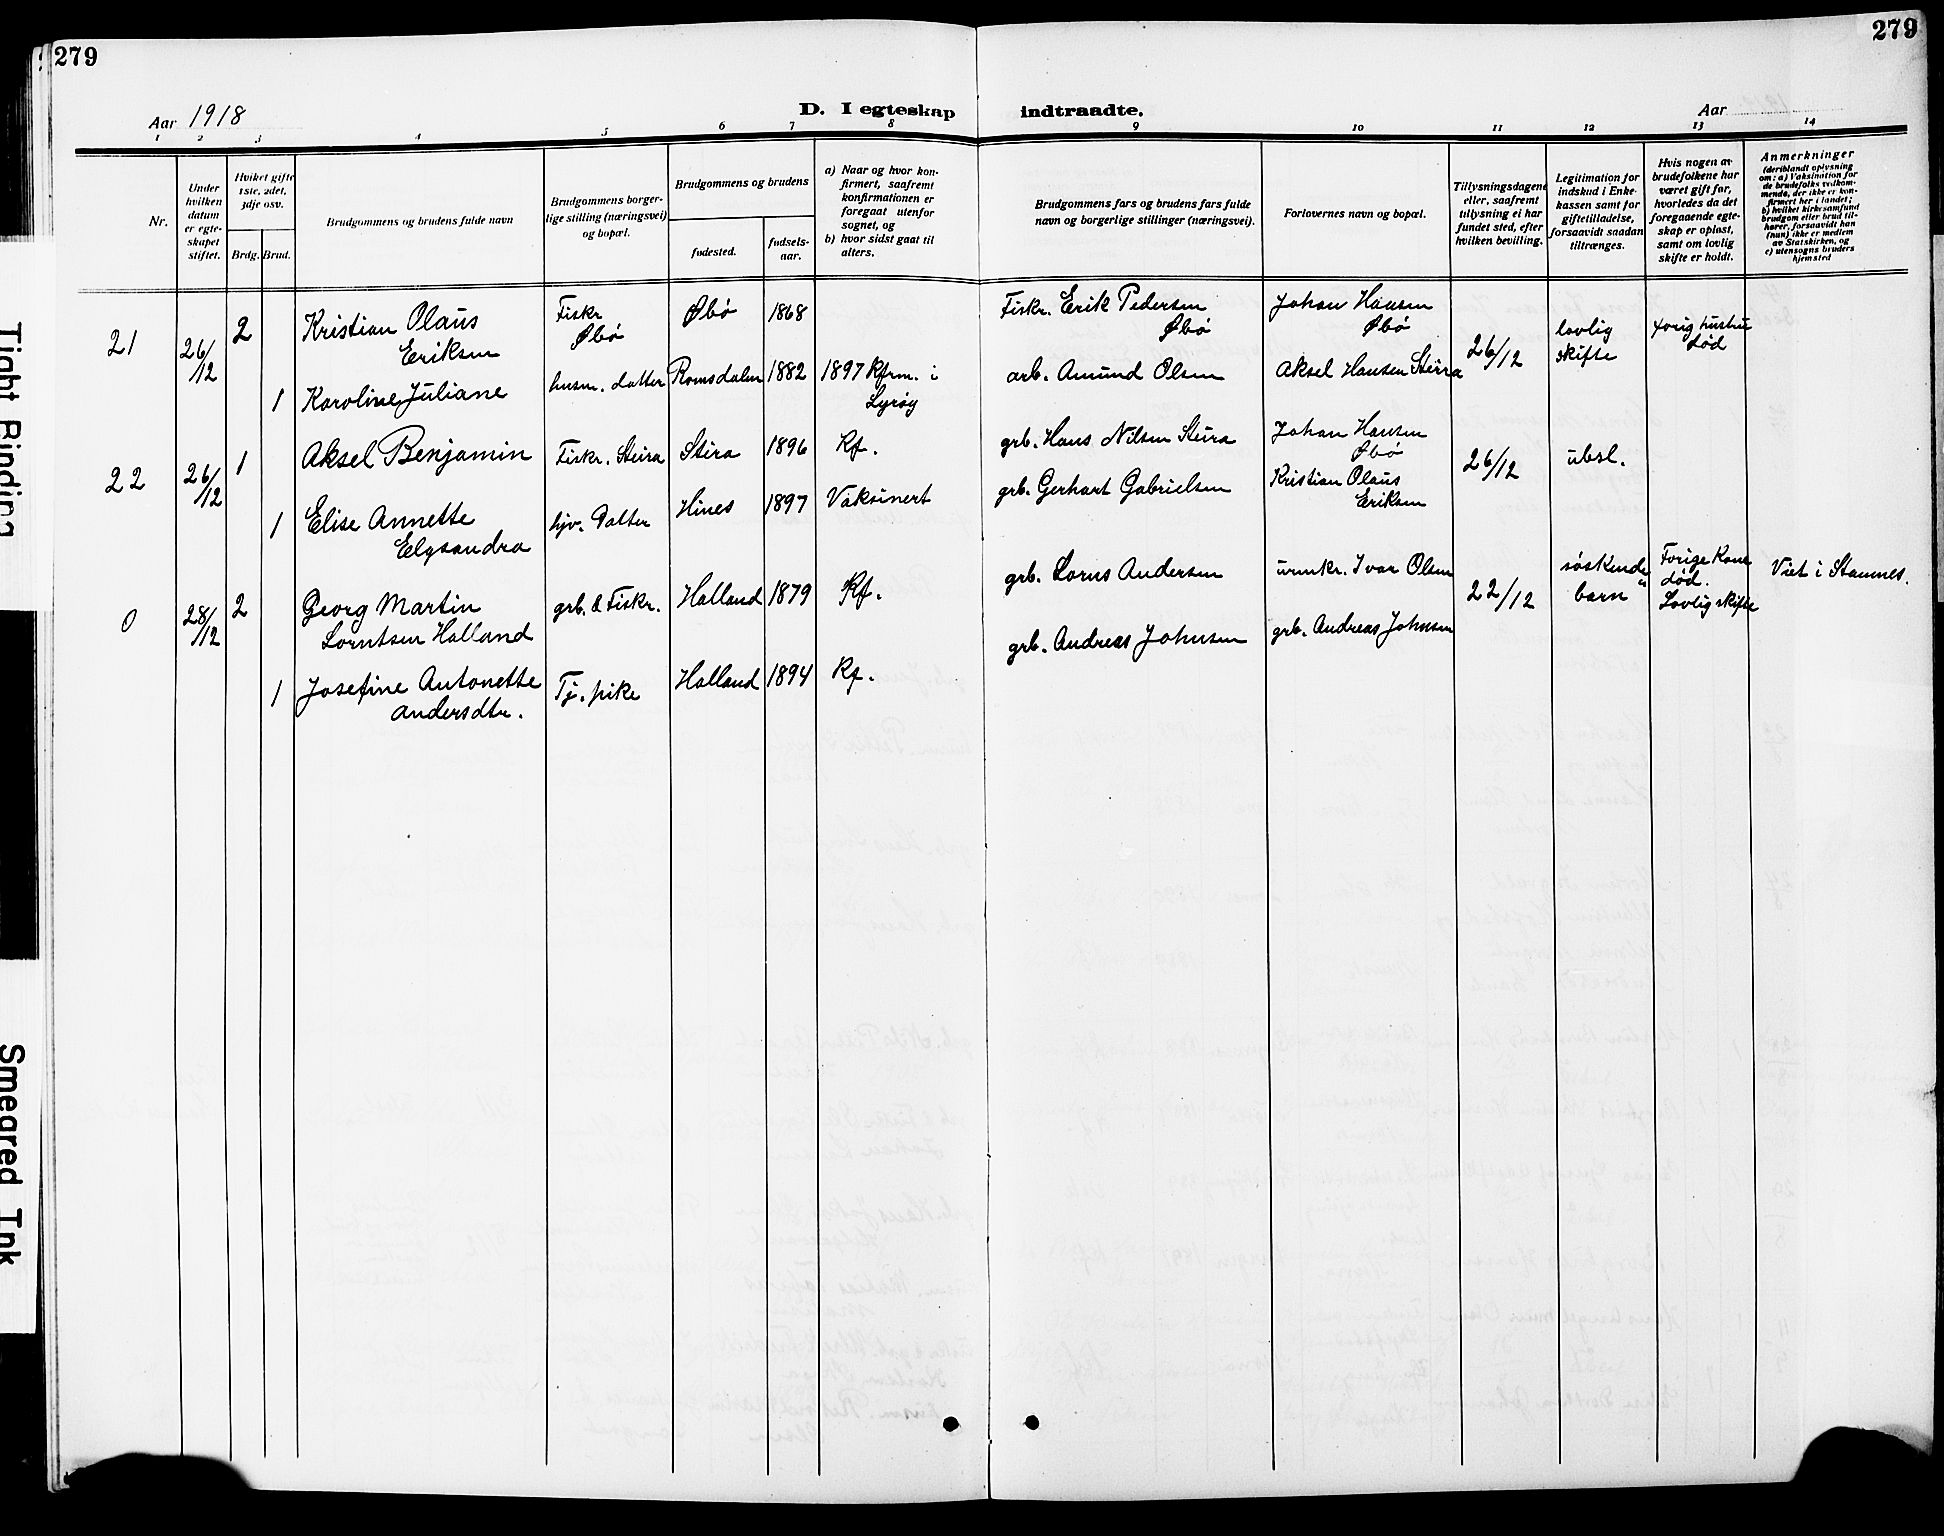 279
279
Aar 1918
D. I egteskap indtraadte.
Aar
1 2 3 4 5 6 7 8 9 10 11 12 13 14
Nr.
Under hvilken datum er egteskapet stiftet.
Hvilket gifte 1ste, 2det, 3dje osv.
Brdg. Brud.
Brudgommens og brudens fulde navn
Brudgommens borgerlige stilling (næringsvei) og bopæl.
Brudgommens og brudens
fødested.
fødselsaar.
a) Naar og hvor konfirmert, saafremt konfirmationen er foregaat utenfor sognet, og
b) hvor sidst gaat til alters.
Brudgommens fars og brudens fars fulde navn og borgerlige stillinger (næringsvei).
Forlovernes navn og bopæl.
Tillysningsdagene eller, saafremt tillysning ei har fundet sted, efter hvilken bevilling.
Legitimation for indskud i Enkekassen samt for giftetilladelse, forsaavidt saadan tiltrænges.
Hvis nogen av brudefolkene har været gift før, hvorledes da det foregaaende egteskap er opløst, samt om lovlig skifte er holdt.
Anmerkninger (deriblandt oplysning om: a) Vaksination for de brudefolks vedkommende, der ikke er konfirmert her i landet; b) hvilket kirkesamfund brudgom eller brud tilhører, forsaavidt han (hun) ikke er medlem av Statskirken, og c) utensogns bruders hjemsted
21 26/12 2 Kristian Olaus Eriksen Fiskr Øbø Øbø 1868 Fiskr. Erik Pedersen Øbø Johan Hansen Øbø 26/12 lovlig skifte forig hustru død
1 Karoline Juliane husm. datter Romsdalen 1882 1897 Kfrm. i arb. Amund Olsen Aksel Hansen Steira
22 26/12 1 Aksel Benjamin Fiskr. Steira Steira 1896 Kf. grb. Hans Nilsen Steira Johan Hansen Øbø 26/12 ubsl.
1 Elise Annette Elysandra hjv. Datter Hines 1897 Vaksinert grb. Gerhart Gabrielsen Kristian Olaus Eriksen
0 28/12 2 Georg Martin Lorntsen Halland grb. & Fiskr. Halland 1879 Kf. grb. Lorns Andersen Ivar Olsen 22/12 søskende barn Forige Kone død. Lovlig skifte Viet i Stamnes.
1 Josefine Antonette Andersdtr. Tj. pike Halland 1894 Kf. grb. Andreas Johnsen grb. Andreas Johnsen
Tight Binding
Smeared Ink